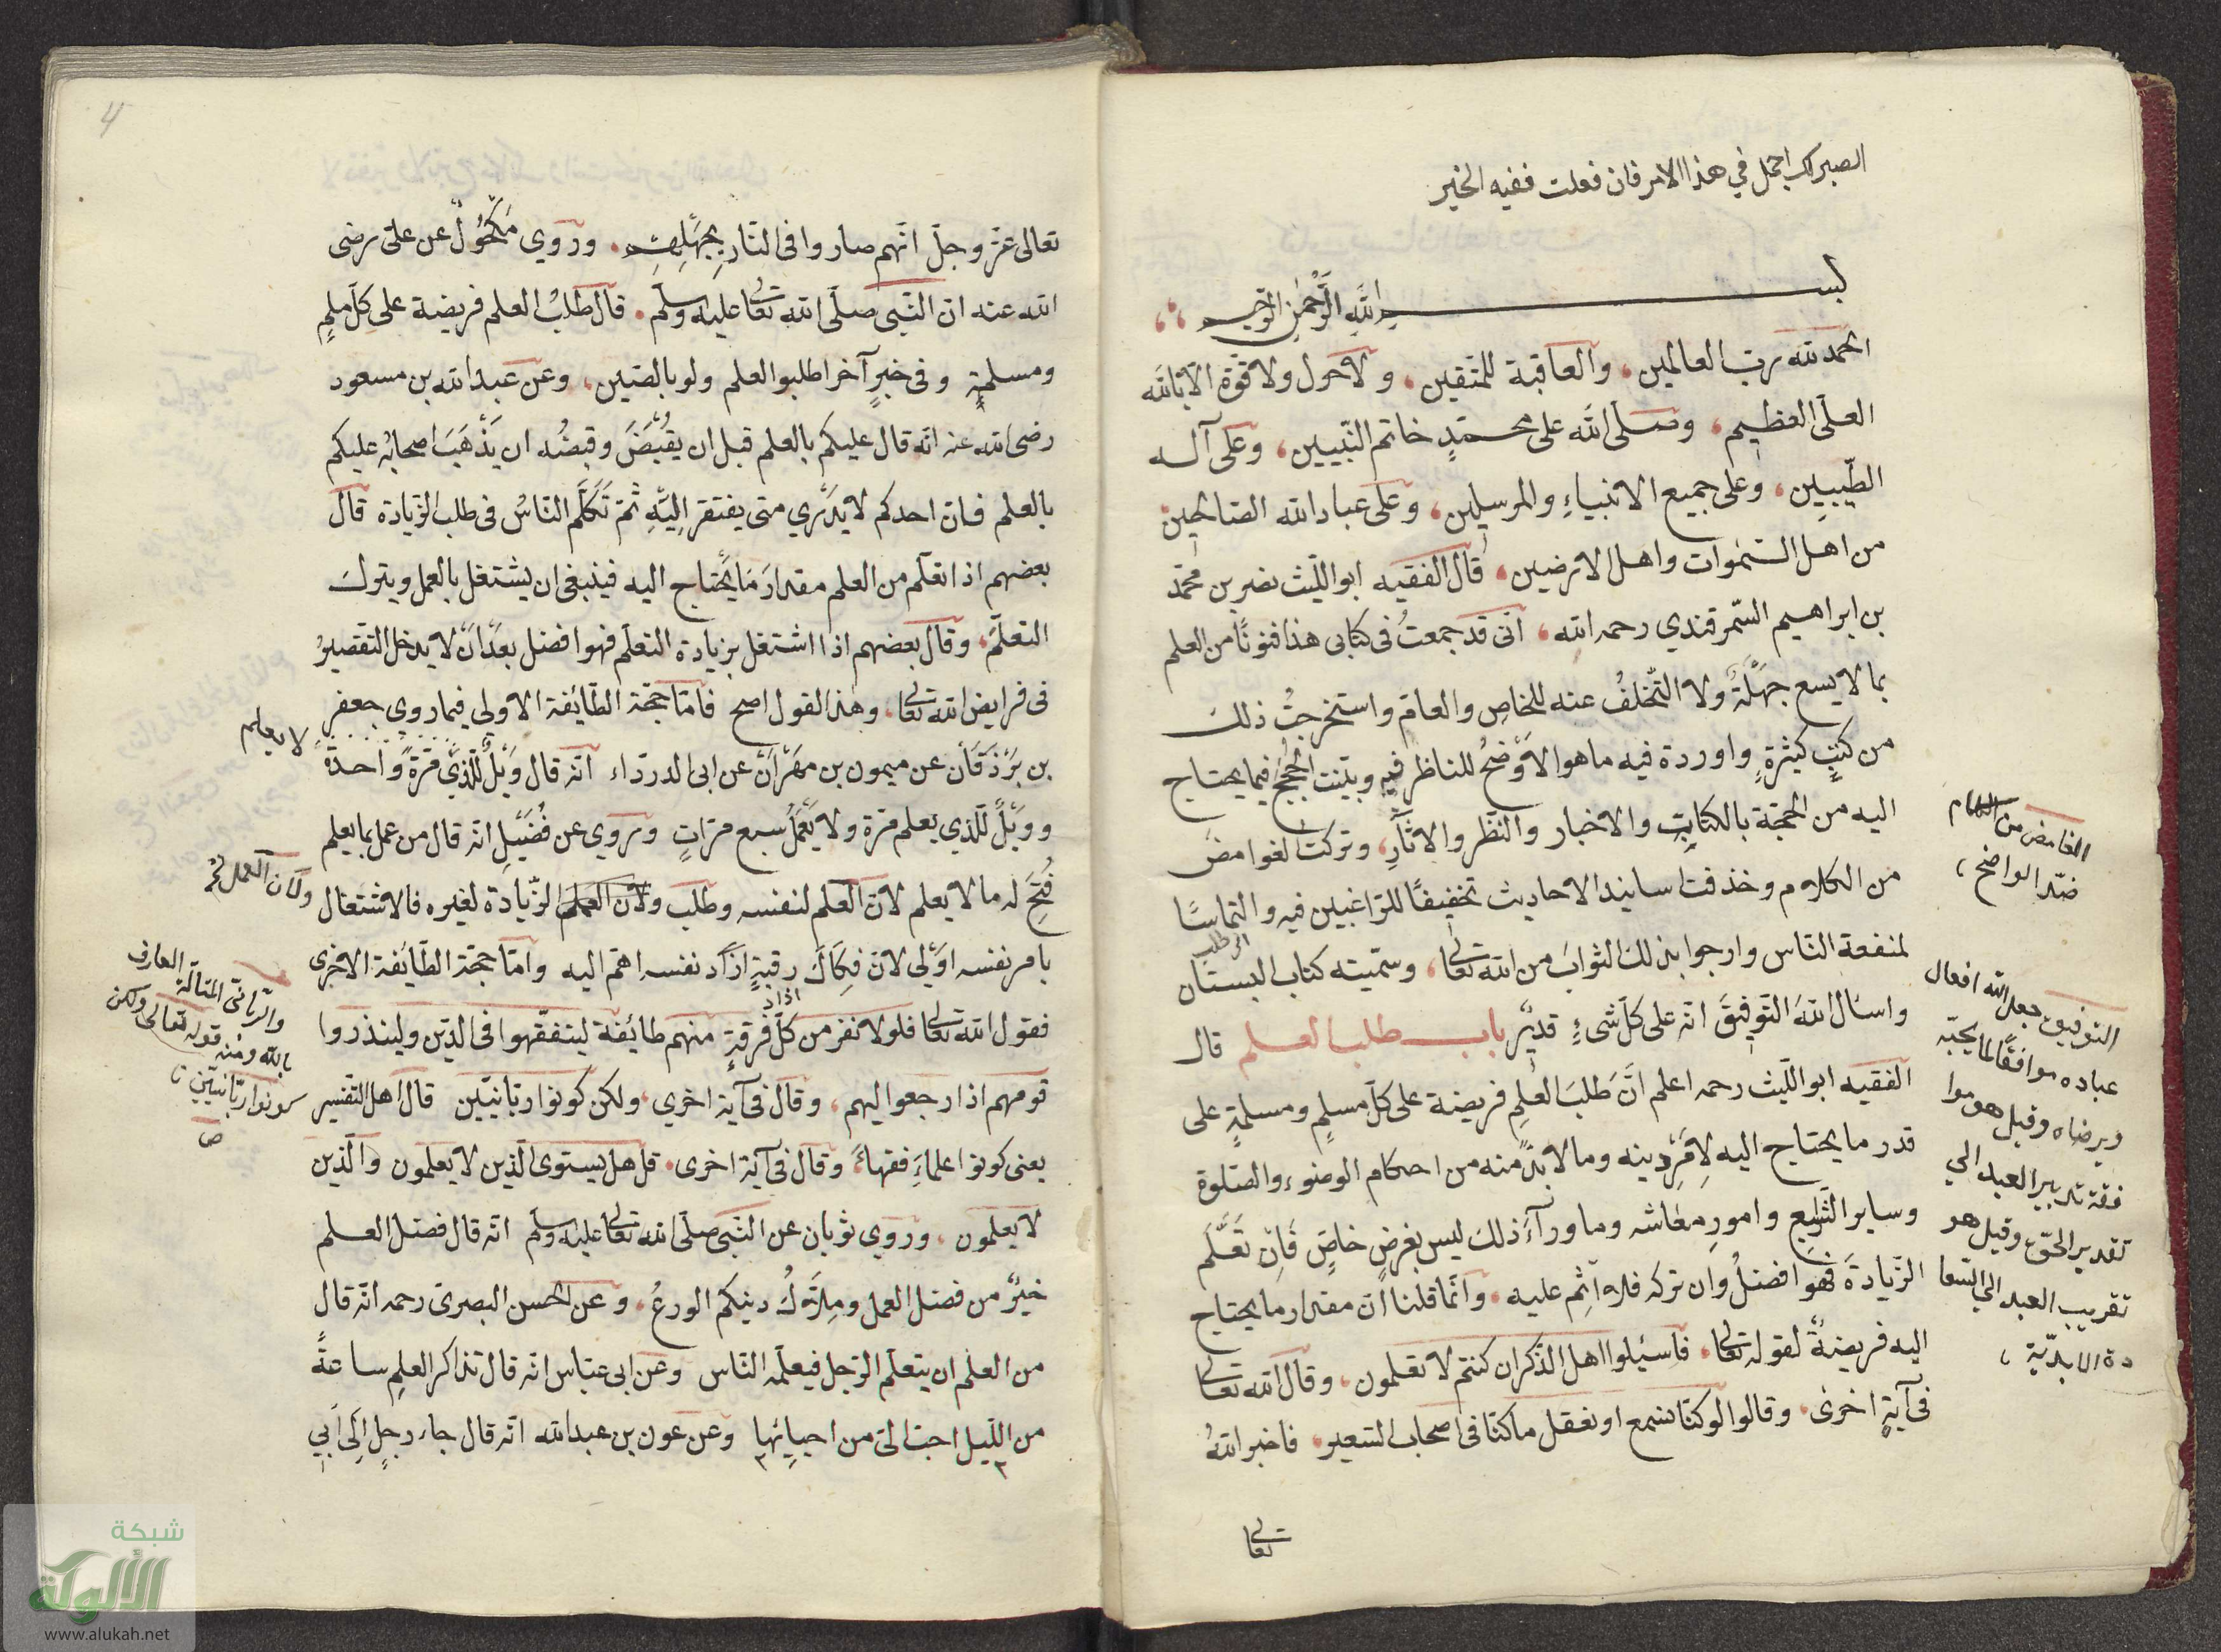 الصبر لك اجمل في هذا الامر فان فعلت ففيه الخير
بسم الله الرحمن الرحيم
الحمد لله رب العالمين، والعاقبة للمتقين، ولا حول ولا قوة الا بالله
العلى العظيم، وصلى الله على محمد خاتم النبيين، وعلى آله
الطيبين، وعلى جميع الانبياء والمرسلين، وعلى عباد الله الصالحين
من اهل السموات واهل الارضين، قال الفقيه ابو الليث نصر بن محمد
بن ابراهيم السمرقندي رحمه الله، انى قد جمعت فى كتابى هذا فنونًا من العلم
بما لا يسع جهلة ولا التخلف عنه للخاص والعام واستخرجت ذلك
من كتب كثيرة واوردة فيه ما هو الاوضح للناظر فيه وبينت الحجج فيما يحتاج
اليه من الحجة بالكتاب والاخبار والنظر والاثار، وتركت الغوامض
من الكلام وخذفت اسانيد الاحاديث تخفيفًا للراغبين فيه والتماسًا
لمنفعة الناس وارجوا بذلك الثواب من الله تعالى، وسميته كتاب البستان
واسال الله التوفيق انه على كل شىء قدير باب طلب العلم قال
الفقيه ابو الليث رحمه اعلم ان طلب العلم فريضة على كل مسلم ومسلمة على
قدر ما يحتاج اليه لامر دينه وما لا بد منه من احكام الوضوء والصلوة
وساير الشرايع وامور معاشه وما ورآء ذلك ليس بفرض خاص فان تعلم
الزيادة فهو افضل وان تركه فلا اثم عليه، وانما قلنا ان مقدار ما يحتاج
اليه فريضة لقوله تعالى، فاسئلوا اهل الذكر ان كنتم لا تعلمون، وقال الله تعالى
فى آية اخرى، وقالوا لو كنا نسمع او نعقل ما كنا فى اصحاب السعير، فاخبر الله
تعالى
الغامض من الكلام
ضد الواضح،
التوفيق جعل الله افعال
عباده موافقًا لما يحبه
ويرضاه وقيل هو موا
فقة تدبير العبد الي
تقدير الحق وقيل هو
تقريب العبد الي السعا
دة الابدية،
4
تعالى عز وجل انهم صاروا فى النار بجهلهم، وروي مكحول عن على رضى
الله عنه ان النبى صلى الله تعالى عليه وسلم، قال طلب العلم فريضة على كل مسلم
ومسلمة وفى خبر آخر اطلبوا العلم ولو بالصين، وعن عبد الله بن مسعود
رضى الله عنه انه قال عليكم بالعلم قبل ان يقبض وقبضه ان يذهب اصحابه عليكم
بالعلم فان احدكم لا يدري متى يفتقر اليه ثم تكلم الناس فى طلب الزيادة قال
بعضهم اذا تعلم من العلم مقدار ما يحتاج اليه فينبغى ان يشتغل بالعمل ويترك
التعلم، وقال بعضهم اذا اشتغل بزيادة التعلم فهو افضل بعد ان لا يدخل التقصير
فى فرايض الله تعالى، وهذا القول اصح فاما حجة الطائفة الاولي فيما روي جعفر
بن برذقان عن ميمون بن مهران عن ابى الدرداء انه قال ويل للذي مرة واحدة
لا يعلم
وويل للذي يعلم مرة ولا يعمل سبع مرات وروي عن فضيل انه قال من عمل بما يعلم
فتح له ما لا يعلم لان العلم لنفسه وطلب ولان العمل الزيادة لغيره فالاشتغال
ولان العمل
بامر نفسه اولي لان فكاك رقبة نفسه اهم اليه واما حجة الطائفة الاخرى
فقول الله تعالى فلولا نفر من كل فرقة منهم طائفة ليتفقهوا فى الدين ولينذروا
قومهم اذا رجعوا اليهم، وقال فى آية اخري، ولكن كونوا ربانيين قال اهل التفسير
يعنى كونوا علماء فقهاء، وقال فى آية اخرى، قل هل يستوى الذين لا يعلمون والذين
لا يعلمون، وروي ثوبان عن النبى صلى الله تعالى عليه وسلم انه قال فضل العلم
خير من فضل العمل وملاك دينكم الورع، وعن الحسن البصرى رحمه انه قال
من العلم ان يتعلم الرجل فيعلمه الناس وعن ابى عباس انه قال تذاكر العلم ساعةً
من الليل احب الى من احيائها وعن عون بن عبد الله انه قال جاء رجل الى ابي
والربانى المتأله العارف
بالله ومنه قوله تعالى ولكن
كونوا ربانيين
ص
شبكة
الألوكة
www.alukah.net